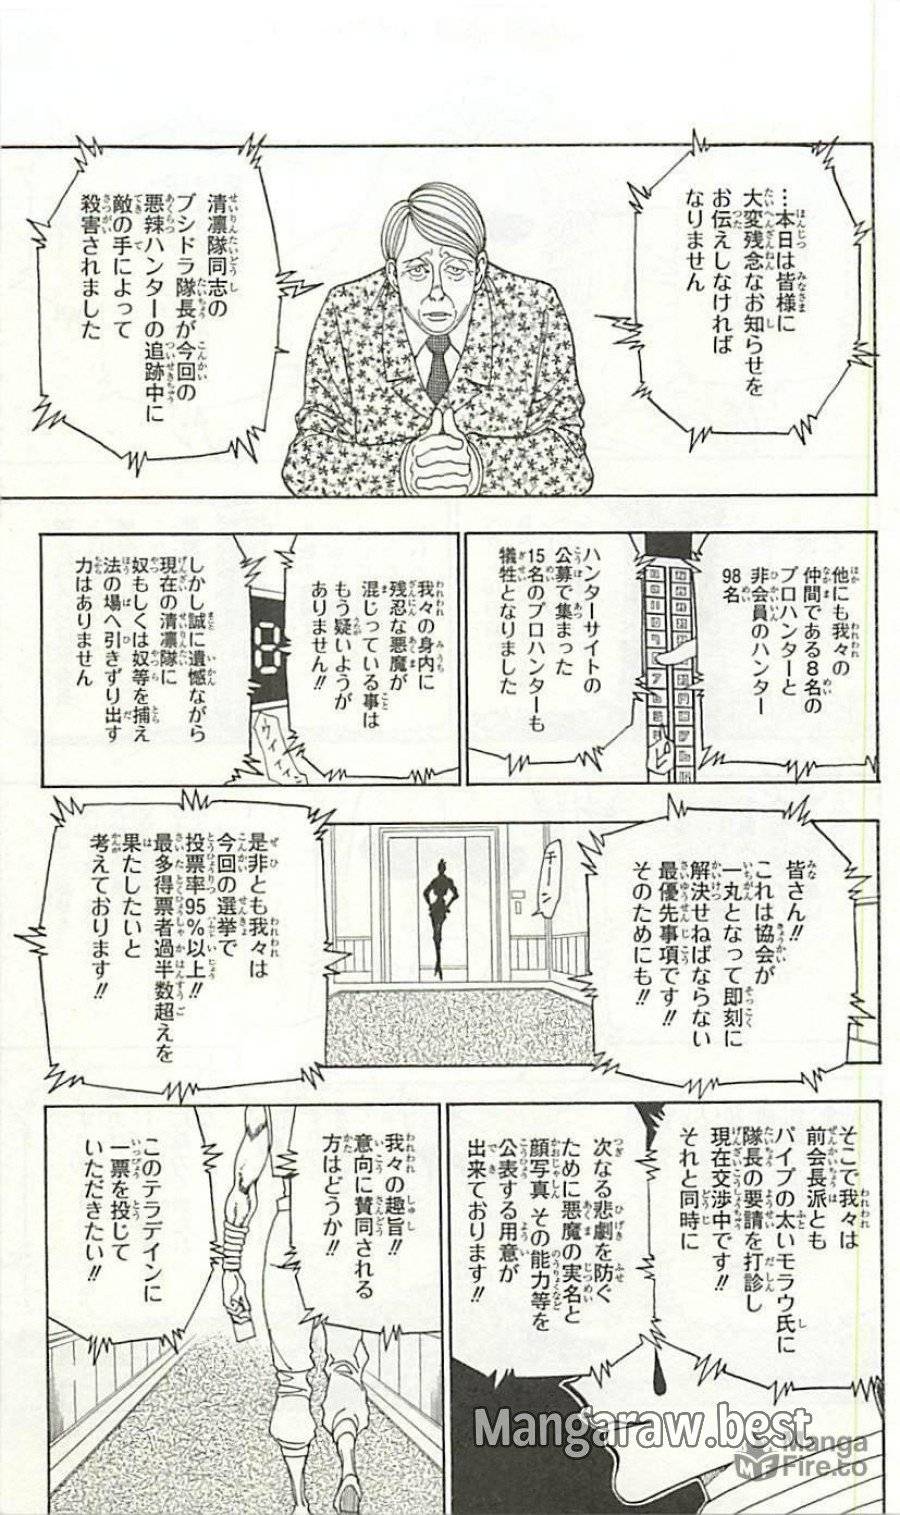 …本日は皆様に
大変残念なお知らせを
お伝えしなければ
なりません
清凛隊同志の
ブシドラ隊長が今回の
悪辣ハンターの追跡中に
敵の手によって
殺害されました
他にも我々の
仲間である8名の
プロハンターと
非会員のハンター
98名
ピ
ハンターサイトの
公募で集まった
15名のプロハンターも
犠牲となりました
我々の身内に
残忍な悪魔が
混じっている事は
もう疑いようが
ありません!!
8
ウィィィン
しかし誠に遺憾ながら
現在の清凛隊に
奴もしくは奴等を捕え
法の場へ引きずり出す
力はありません
皆さん!!
これは協会が
一丸となって即刻に
解決せねばならない
最優先事項です!!
そのためにも!!
チーン
是非とも我々は
今回の選挙で
投票率95%以上!!
最多得票者過半数超えを
果たしたいと
考えております!!
そこで我々は
前会長派とも
パイプの太いモラウ氏に
隊長の要請を打診し
現在交渉中です!!
それと同時に
次なる悲劇を防ぐ
ために悪魔の実名と
顔写真 その能力等を
公表する用意が
出来ております!!
我々の趣旨!!
意向に賛同される
方はどうか!!
このテラデインに
一票を投じて
いただきたい!!
Mangaraw.best
Manga
Fire.to
MF